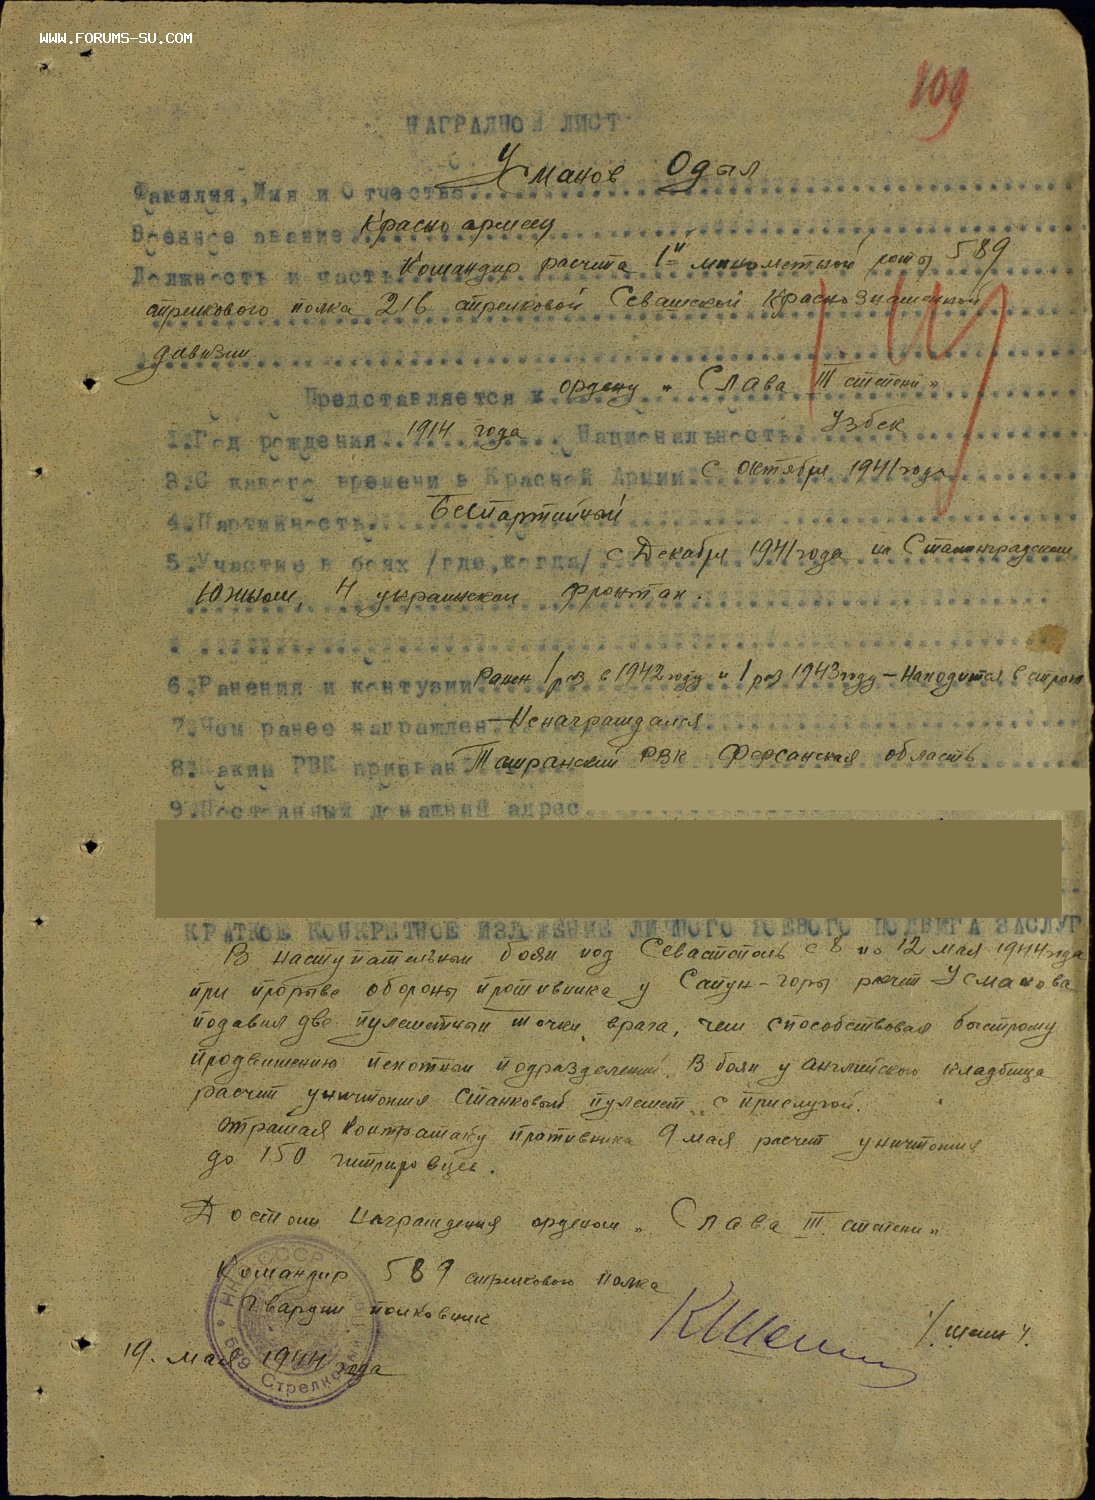 WWW.FORUMS-SU.COM
109
НАГРАДНОЙ ЛИСТ
Фамилия, Имя и Отчество Усманов Одыл
Военное звание Красноармеец
Должность и часть Командир расчета 1й минометной роты 589
стрелкового полка 216 стрелковой Сивашской Краснознаменной
дивизии
Представляется к ордену "Слава III степени"
1.Год рождения 1914 года Национальность Узбек
3.С какого времени в Красной Армии с октября 1941 года
4.Партийность Беспартийный
5.Участие в боях /где,когда/ с Декабря 1941 года на Сталинградском
Южном, 4 украинском фронтах.
6.Ранения и контузии Ранен 1 раз в 1942 году и 1 раз 1943 году - Находится в строю
7.Чем ранее награжден - Ненаграждался
8.Каким РВК призван РВК Ферганская область
9.Постоянный домашний адрес
КРАТКОЕ КОНКРЕТНОЕ ИЗЛОЖЕНИЕ ЛИЧНОГО БОЕВОГО ПОДВИГА ЗАСЛУГ
В наступательных боях под Севастополь с 8 по 12 мая 1944 года
при прорыве обороны противника у Сапун-горы расчет Усманова
подавил две пулеметных точки врага, чем способствовал быстрому
продвижению пехотных подразделений. В боях у английского кладбища
расчет уничтожил станковый пулемет с прислугой.
Отражая контратаку противника 9 мая расчет уничтожил
до 150 гитлеровцев.
Достоин награждения орденом "Слава III степени"
Командир 589 стрелкового полка
Гвардии полковник
19. мая 1944 года
589 Стрелковый